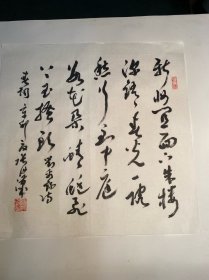 新妆宜面下朱楼
深锁春光一院
愁行到中庭
数花朵蜻蜓飞
上玉搔头 刘禹锡诗
春词 辛卯